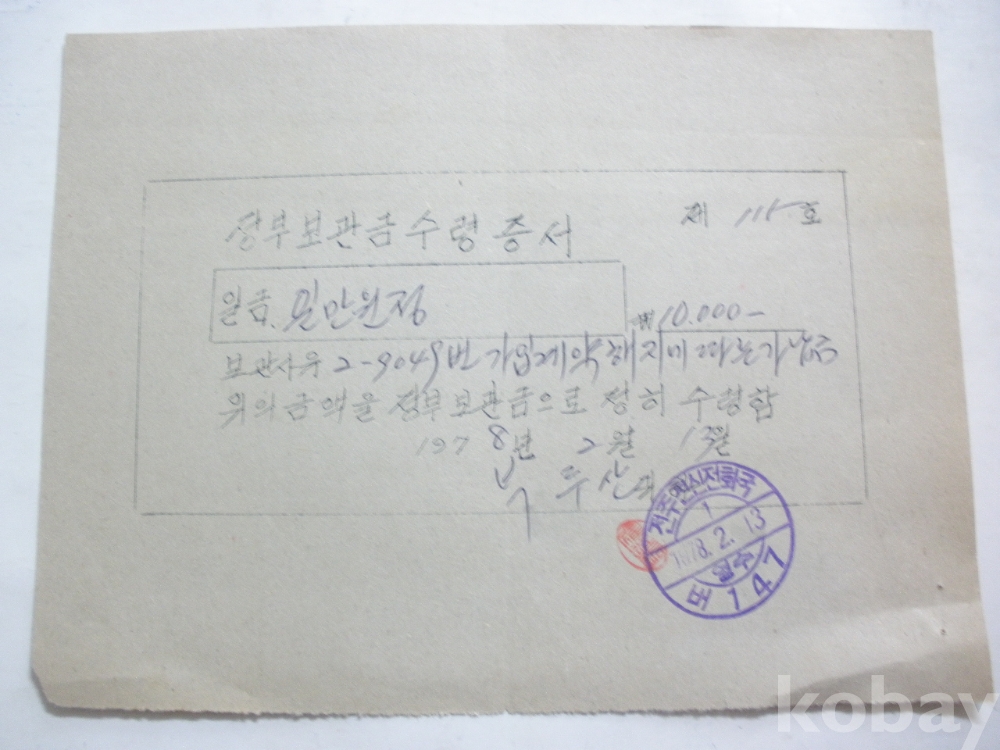 정부보관금수령증서
제 115호
일금. 일만원정
₩10.000-
보관사유 2-9049번 가입계약해지에 따른
위의 금액을 정부보관금으로 정히 수령함
1978년 2월 13일
전주전신전화국
1978.2.13
일수
버147
kobay